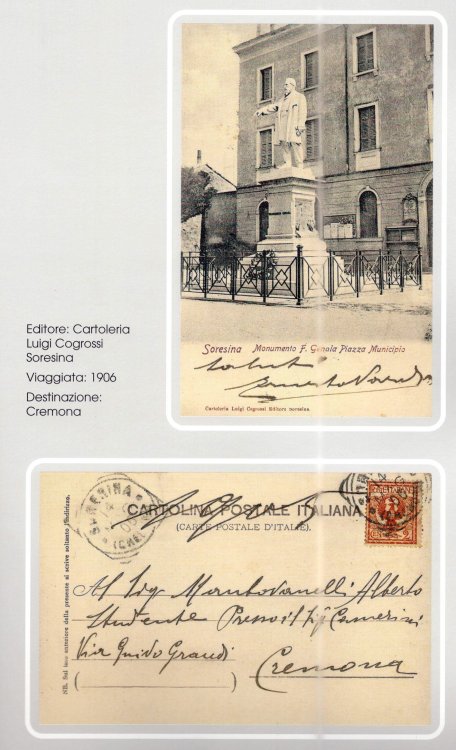 Editore: Cartoleria
Luigi Cogrossi
Soresina
Viaggiata: 1906
Destinazione:
Cremona
Soresina Monumento F. Genala Piazza Municipio
Saluti
Cartoleria Luigi Cogrossi Editore Soresina.
SORESINA
(CREMONA)
CARTOLINA POSTALE ITALIANA
(CARTE POSTALE D'ITALIE).
NB. Sul lato anteriore della presente si scrive soltanto l'indirizzo.
Al Sig Mantovanelli Alberto
Studente Presso il Sig Camerini
Via Guido Grandi
Cremona